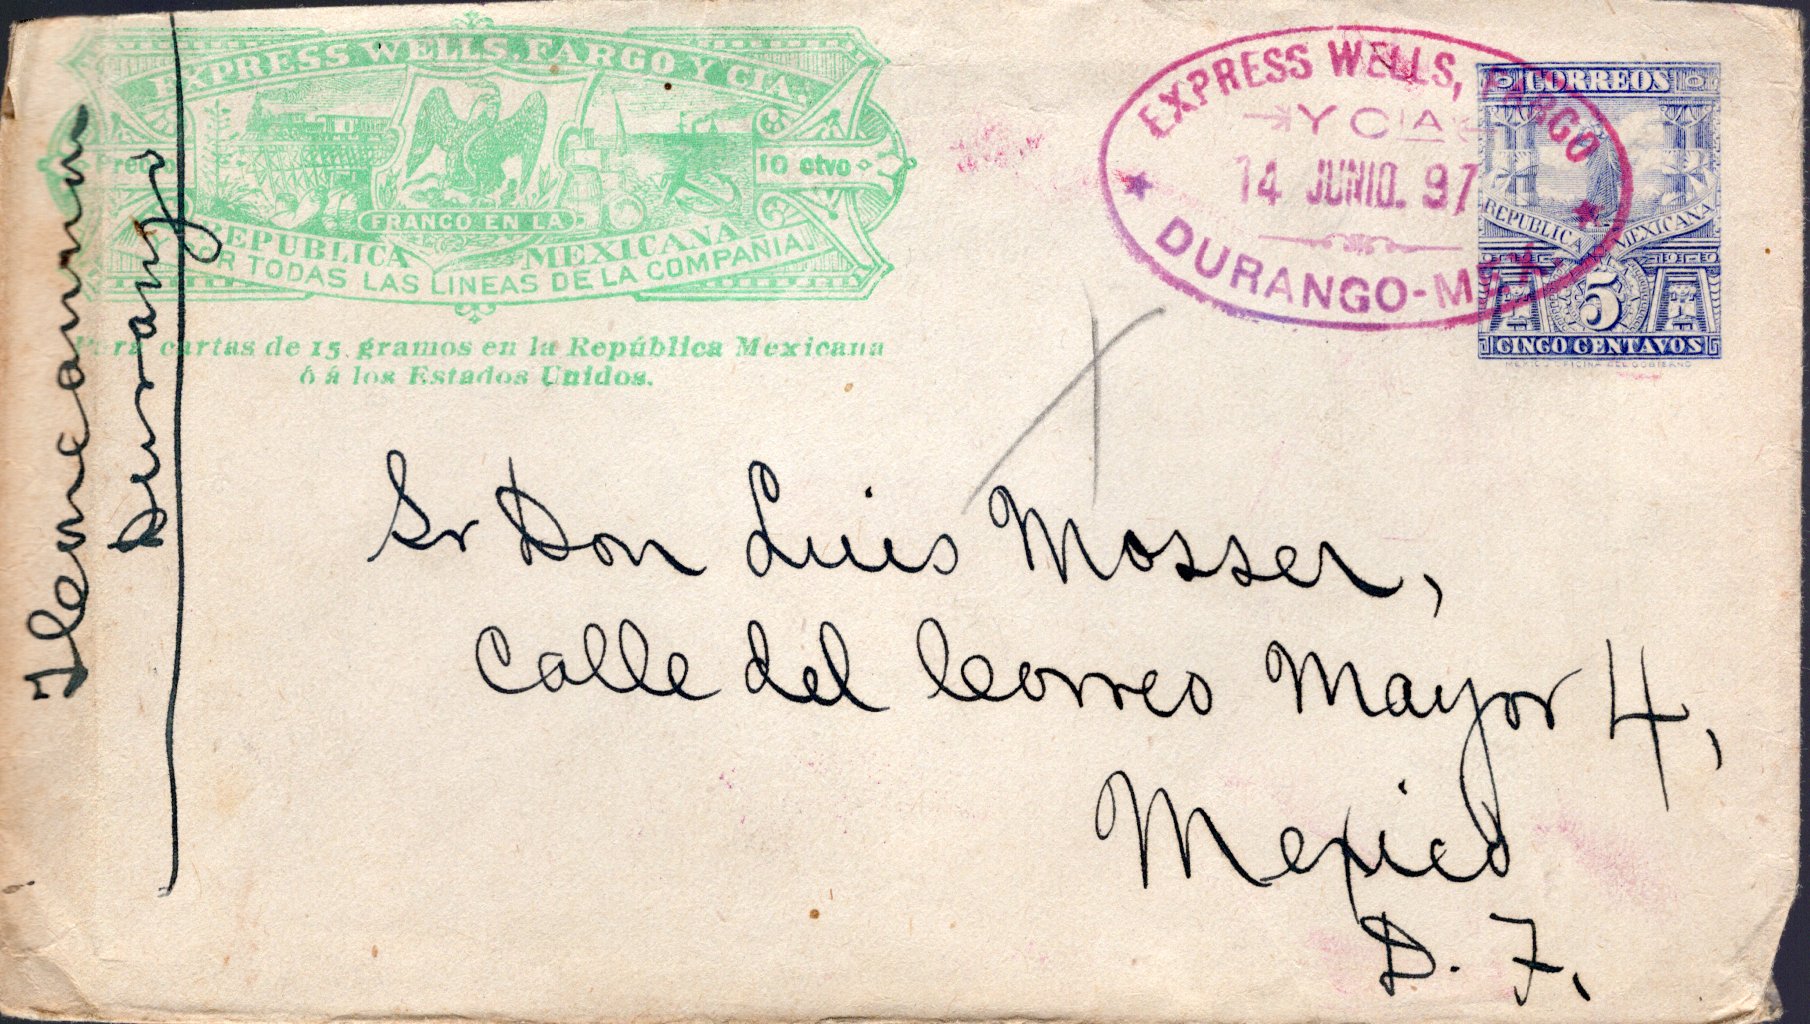 EXPRESS WELLS, FARGO Y CIA.
Precio
10 ctvo
FRANCO EN LA
REPUBLICA MEXICANA
POR TODAS LAS LINEAS DE LA COMPAÑIA.
Para cartas de 15 gramos en la República Mexicana
ó á los Estados Unidos.
EXPRESS WELLS, FARGO
Y CIA
14 JUNIO. 97
DURANGO-MEX.
CORREOS
REPUBLICA MEXICANA
5
CINCO CENTAVOS
MEXICO OFICINA DEL GOBIERNO
Durango
Sr Don Luis Mosser,
Calle del Correo Mayor 4,
Mexico
D. F.